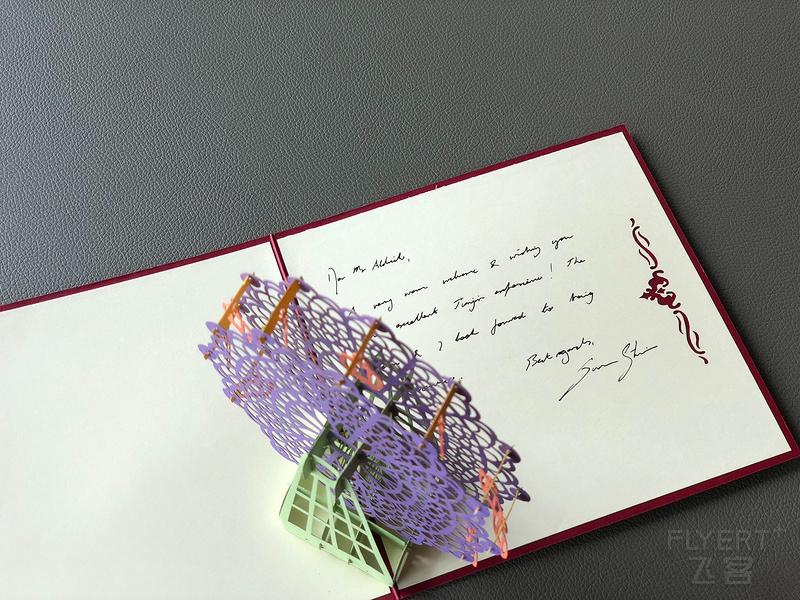 Dear Mr
very warm welcome & wishing you
excellent Tianjin experience! The
& I look forward to being
Best regards,
FLYERT+
飞客